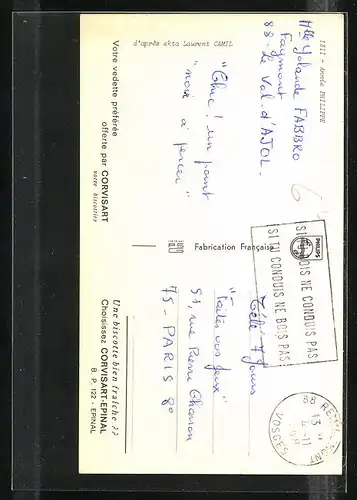 1811 - Annie PHILIPPE
d'après ekta Laurent CAMIL
Mlle Yolande FABBRO
Faymont
88 - Le Val d'AJOL.
"Chic! un point
"noir à percer"
Votre vedette préférée
offerte par CORVISART
votre biscottier
Fabrication Française
PHILIPS
SI TU BOIS NE CONDUIS PAS
SI TU CONDUIS NE BOIS PAS
88 REMIREMONT
13 H
4-11
VOSGES
Télé 7 Jours
"Faites vos Jeux"
51, rue Pierre Charron
75 - PARIS 8e
Une biscotte bien fraîche ??
Choisissez CORVISART-EPINAL
B. P. 122 - EPINAL